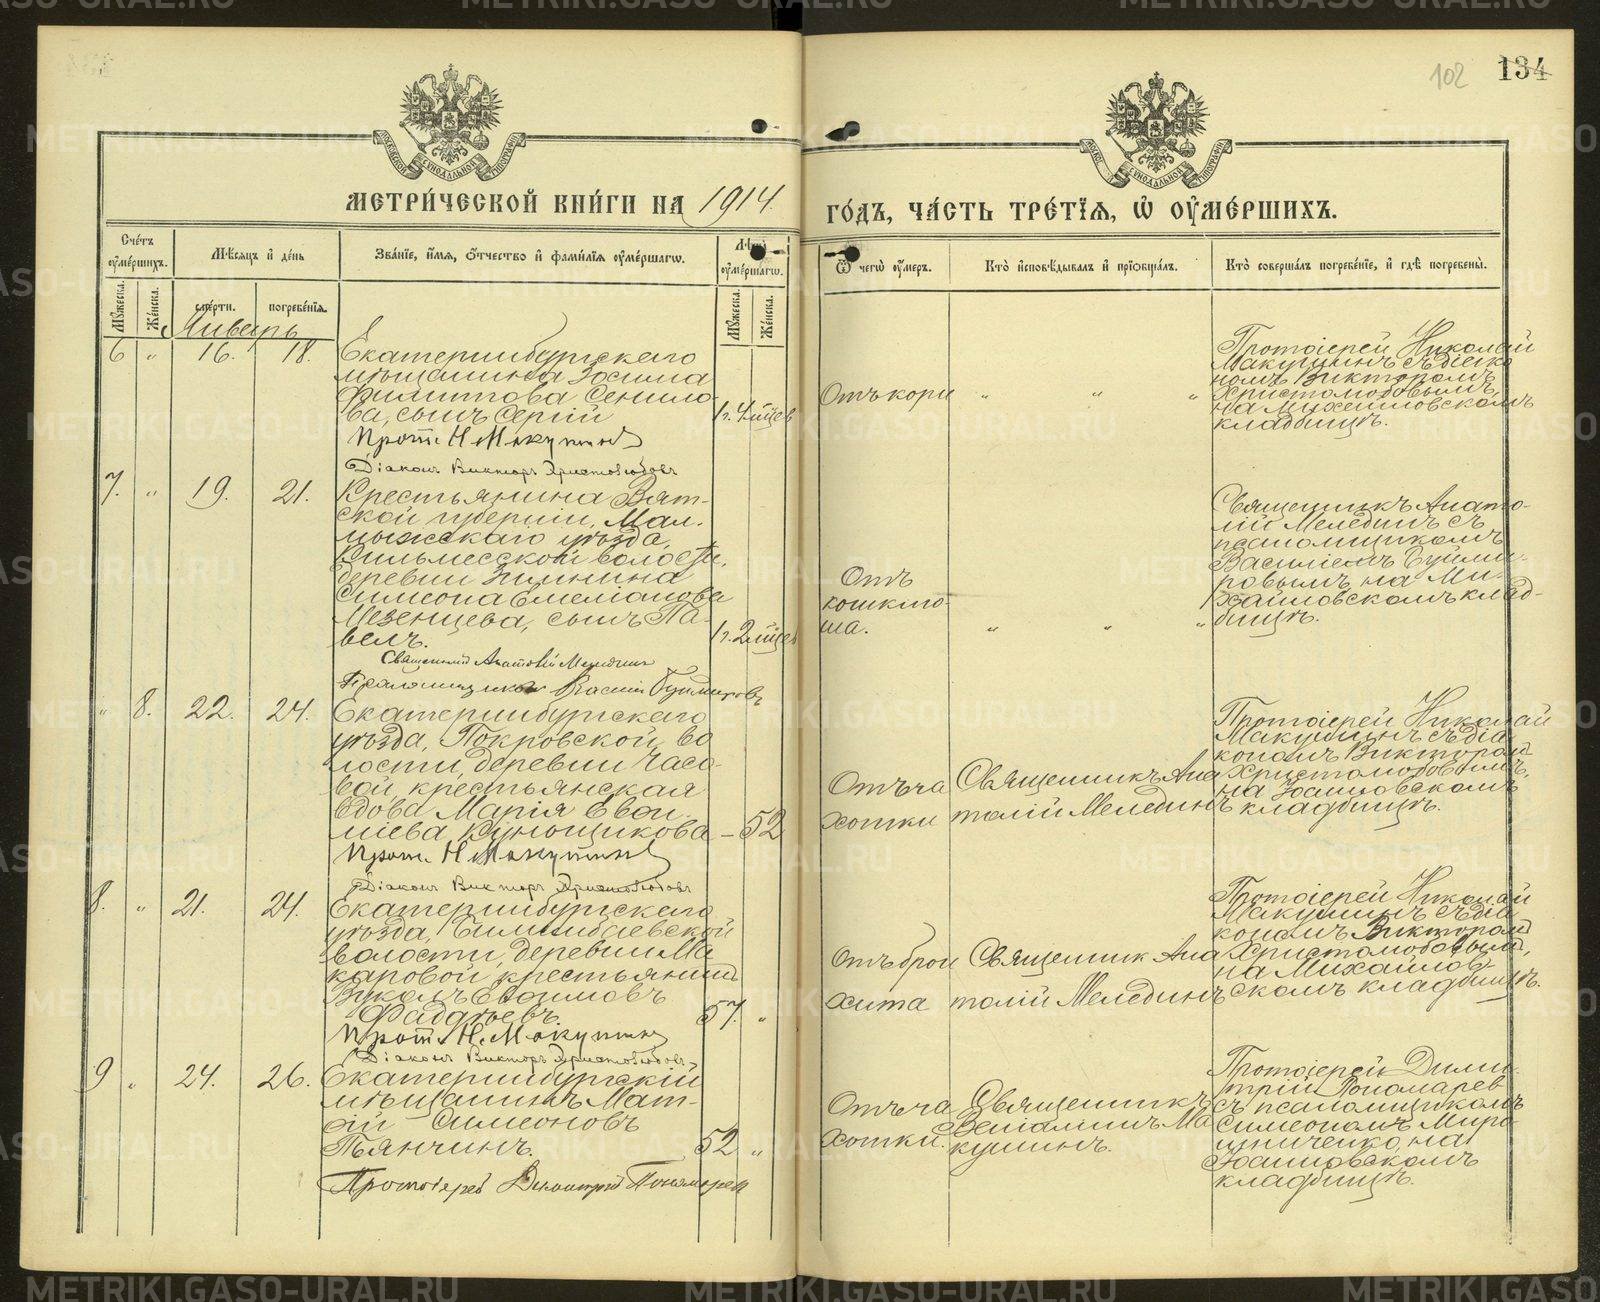 102
134
МЕТРИ́ЧЕСКОЙ КНИ́ГИ НА 1914
ГО́ДЪ, ЧА́СТЬ ТРЕ́ТЇѦ, Ѡ҆ ОУ҆МЕ́РШИХЪ.
Сче́тъ оу҆ме́ршихъ.
Мѣ́сѧцъ и҆ де́нь
Зва́нїе, и҆́мѧ, ѻ҆́тчество и҆ фами́лїѧ оу҆ме́ршагѡ.
Лѣ́та оу҆ме́ршагѡ.
Ѿ чегѡ̀ оу҆́меръ.
Кто̀ и҆сповѣ́дывалъ и҆ прїѡбща́лъ.
Кто̀ соверша́лъ погребе́нїе, и҆ гдѣ̀ погребены̀.
Мꙋ́жеска.
Же́нска.
сме́рти.
погребе́нїѧ.
Мꙋ́жеска.
Же́нска.
Январь
6 " 16. 18.
Екатеринбургскаго
мѣщанина Зосима
Филиппова
ва, сынъ Сергій
1 г. 4 мѣсяцев
Прот. Н Макушинъ
Діаконъ Викторъ Христолюбовъ
Отъ кори
" " "
Протоіерей Николай
Макушинъ съ діако
номъ Викторомъ
Христолюбовымъ,
на Михайловскомъ
кладбищѣ.
7. " 19. 21.
Крестьянина Вят-
ской губерніи, Мал-
мыжскаго уѣзда,
Кильмесской волости,
деревни Зимнина
Симеона Емеліанова
Мезенцева, сынъ Па-
велъ.
1 г. 2 мѣсяц
Священникъ Анатолій Мелединъ
Псаломщикъ Василій Буймировъ
Отъ
коклю
ша.
" " "
Священникъ Анато-
лій Мелединъ съ
псаломщикомъ
Василіемъ Буйми-
ровымъ, на Ми-
хайловскомъ клад-
бищѣ.
" 8. 22. 24.
Екатеринбургскаго
уѣзда, Покровской во
лости, деревни Часо-
вой, крестьянская
вдова Марія Евфи
міева Кунощикова
– 52
Прот. Н Макушинъ
Діаконъ Викторъ Христолюбовъ
Отъ ча
хотки
Священникъ Ана
толій Мелединъ
Протоіерей Николай
Макушинъ съ діа
кономъ Викторомъ
Христолюбовымъ,
на Іоанновскомъ
кладбищѣ.
8. " 21. 24.
Екатеринбургскаго
уѣзда, Билимбаевской
волости, деревни Ма
каровой крестьянинъ
Вуколъ Евфимовъ
Фадѣевъ.
57. "
Прот. Н. Макушинъ
Діаконъ Викторъ Христолюбовъ
Отъ брон
хита
Священник Ана
толій Мелединъ
Протоіерей Николай
Макушинъ съ діа
кономъ Викторомъ
Христолюбовымъ,
на Михайлов-
скомъ кладбищѣ.
9 " 24. 26.
Екатеринбургскій
мѣщанинъ Мат-
ѳій Симеоновъ
Тянчинъ.
52 "
Протоіерей Димитрій Пономарев
Отъ ча
хотки.
Священникъ
Веніаминъ Ма
кушинъ.
Протоіерей Дими-
трій Пономарев
съ псаломщикомъ
Симеономъ Миро-
шниченко, на
Іоанновскомъ
кладбищѣ.
METRIKI.GASO-URAL.RU